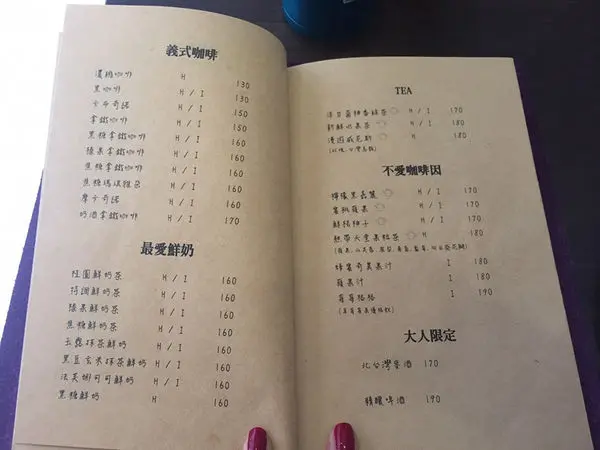 義式咖啡
濃縮咖啡 H 130
黑咖啡 H / I 130
卡布奇諾 H / I 150
拿鐵咖啡 H / I 150
黑糖拿鐵咖啡 H / I 160
榛果拿鐵咖啡 H / I 160
焦糖拿鐵咖啡 H / I 160
焦糖瑪琪雅朵 H / I 160
摩卡奇諾 H / I 160
奶酒拿鐵咖啡 H / I 170
最愛鮮奶
桂圓鮮奶茶 H / I 160
特調鮮奶茶 H / I 160
榛果鮮奶茶 H / I 160
焦糖鮮奶茶 H / I 160
玉露抹茶鮮奶 H / I 160
黑豆玄米抹茶鮮奶 H / I 160
法芙娜可可鮮奶 H / I 160
黑糖鮮奶 H 160
TEA
洋甘菊柚香綠茶 H / I 170
新鮮水果茶 H / I 180
漫遊威尼斯 H 180
不愛咖啡因
檸檬黑嘉麗 H / I 170
蜜桃蘋果 H / I 170
鮮橘柚子 H / I 170
熱帶天堂果粒茶 H 180
蜂蜜奇異果汁 I 180
蘋果汁 I 180
莓莓格格 I 190
大人限定
北台灣啤酒 170
精釀啤酒 190